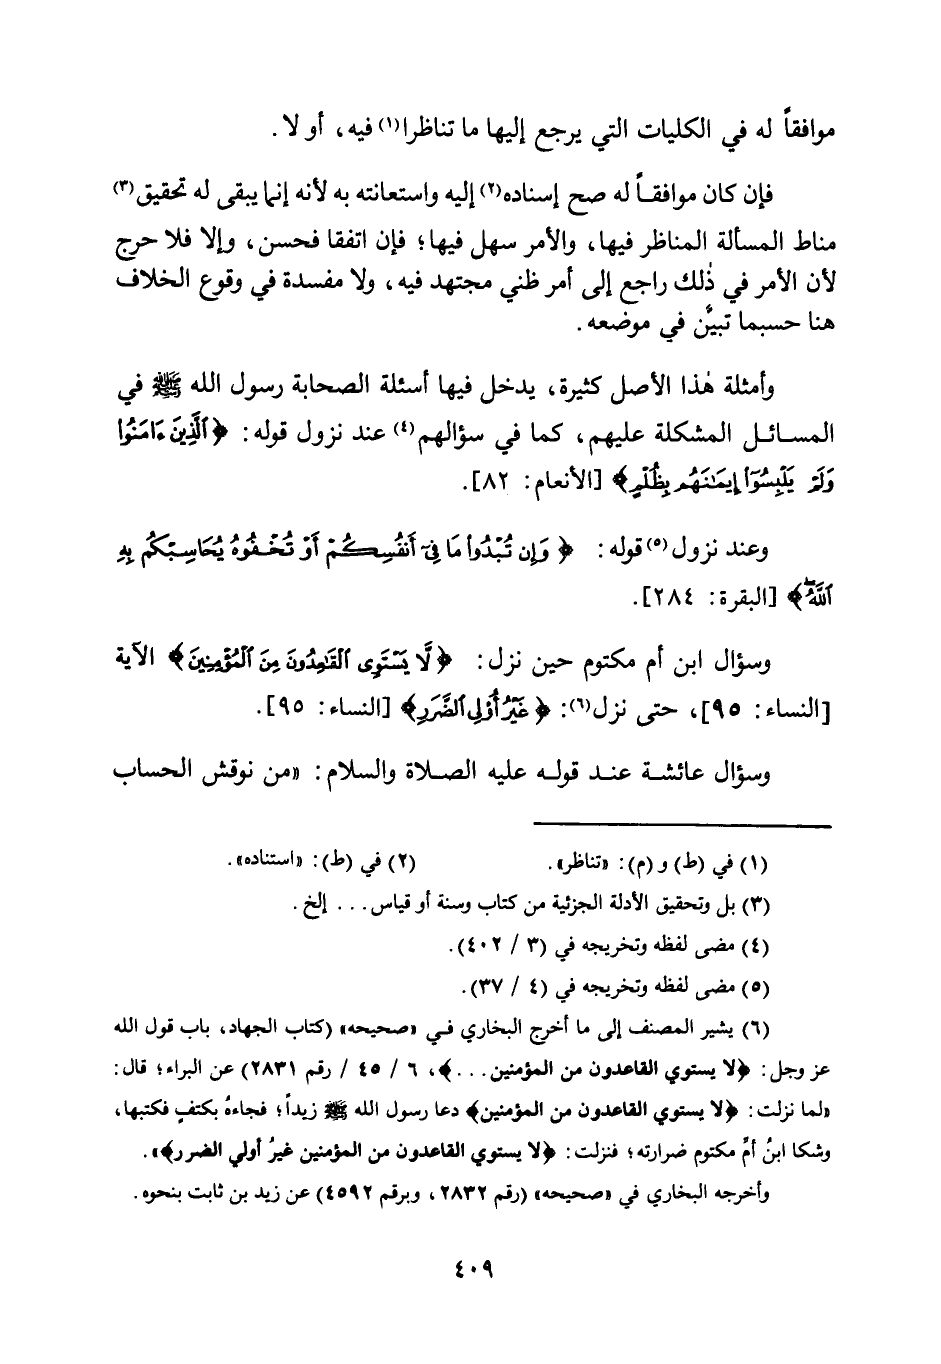 موافقاً له في الكليات التي يرجع إليها ما تناظرا(١) فيه، أو لا.
فإن كان موافقـاً له صح إسناده(٢) إليه واستعانته به لأنه إنما يبقى له تحقيق(٣)
مناط المسألة المناظر فيها، والأمر سهل فيها؛ فإن اتفقا فحسن، وإلا فلا حرج
لأن الأمر في ذٰلك راجع إلى أمر ظني مجتهد فيه، ولا مفسدة في وقوع الخلاف
هنا حسبما تبيَّن في موضعه.
وأمثلة هٰذا الأصل كثيرة، يدخل فيها أسئلة الصحابة رسول الله ﷺ في
المسـائـل المشكلة عليهم، كما في سؤالهم(٤) عند نزول قوله: ﴿ٱلَّذِينَ ءَامَنُوا۟
وَلَمْ يَلْبِسُوٓا۟ إِيمَـٰنَهُم بِظُلْمٍ﴾ [الأنعام: ٨٢].
وعند نزول(٥) قوله: ﴿وَإِن تُبْدُوا۟ مَا فِىٓ أَنفُسِكُمْ أَوْ تُخْفُوهُ يُحَاسِبْكُم بِهِ
ٱللَّهُ﴾ [البقرة: ٢٨٤].
وسؤال ابن أم مكتوم حين نزل: ﴿لَّا يَسْتَوِى ٱلْقَـٰعِدُونَ مِنَ ٱلْمُؤْمِنِينَ﴾ الآية
[النساء: ٩٥]، حتى نزل(٦): ﴿غَيْرُ أُو۟لِى ٱلضَّرَرِ﴾ [النساء: ٩٥].
وسؤال عائشـة عنـد قولـه عليه الصـلاة والسلام: «من نوقش الحساب
(١) في (ط) و (م): «تناظر». (٢) في (ط): «استناده».
(٣) بل وتحقيق الأدلة الجزئية من كتاب وسنة أو قياس... إلخ.
(٤) مضى لفظه وتخريجه في (٣ / ٤٠٢).
(٥) مضى لفظه وتخريجه في (٤ / ٣٧).
(٦) يشير المصنف إلى ما أخرج البخاري في «صحيحه» (كتاب الجهاد، باب قول الله
عز وجل: ﴿لا يستوي القاعدون من المؤمنين...﴾، ٦ / ٤٥ / رقم ٢٨٣١) عن البراء؛ قال:
«لما نزلت: ﴿لا يستوي القاعدون من المؤمنين﴾ دعا رسول الله ﷺ زيداً؛ فجاءهُ بكتفٍ فكتبها،
وشكا ابنُ أمِّ مكتوم ضرارته؛ فنزلت: ﴿لا يستوي القاعدون من المؤمنين غيرُ أولي الضرر﴾».
وأخرجه البخاري في «صحيحه» (رقم ٢٨٣٢، وبرقم ٤٥٩٢) عن زيد بن ثابت بنحوه.
٤٠٩